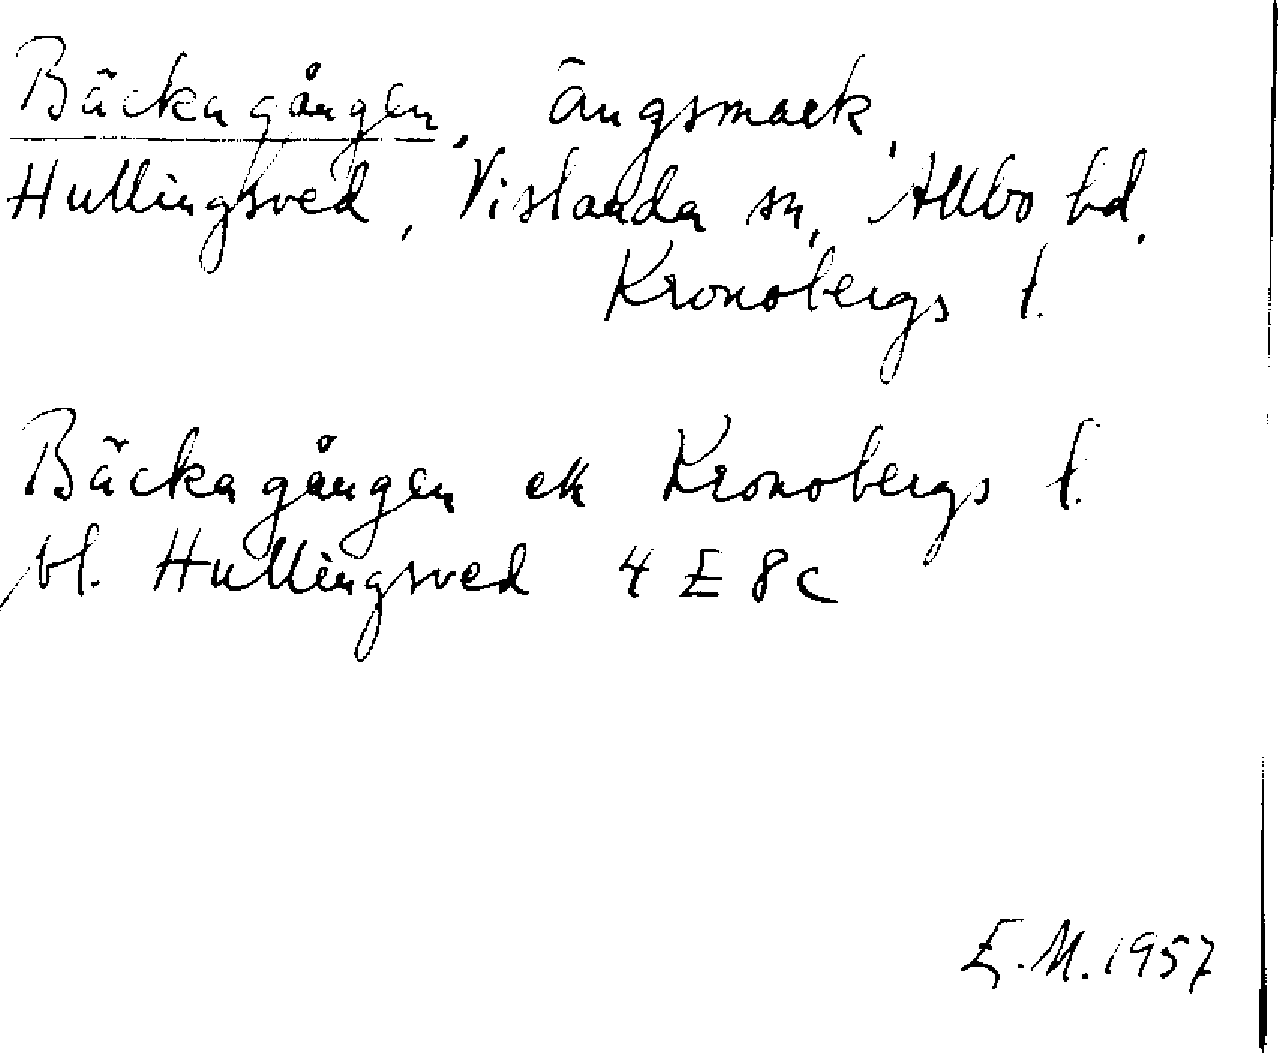 Bäckagången, ängsmark,
Hullingsved, Vislanda sn, Allbo hd.
Kronobergs l.
Bäckagången ek Kronobergs l.
bl. Hullingsved 4 E 8c
E.M. 1957